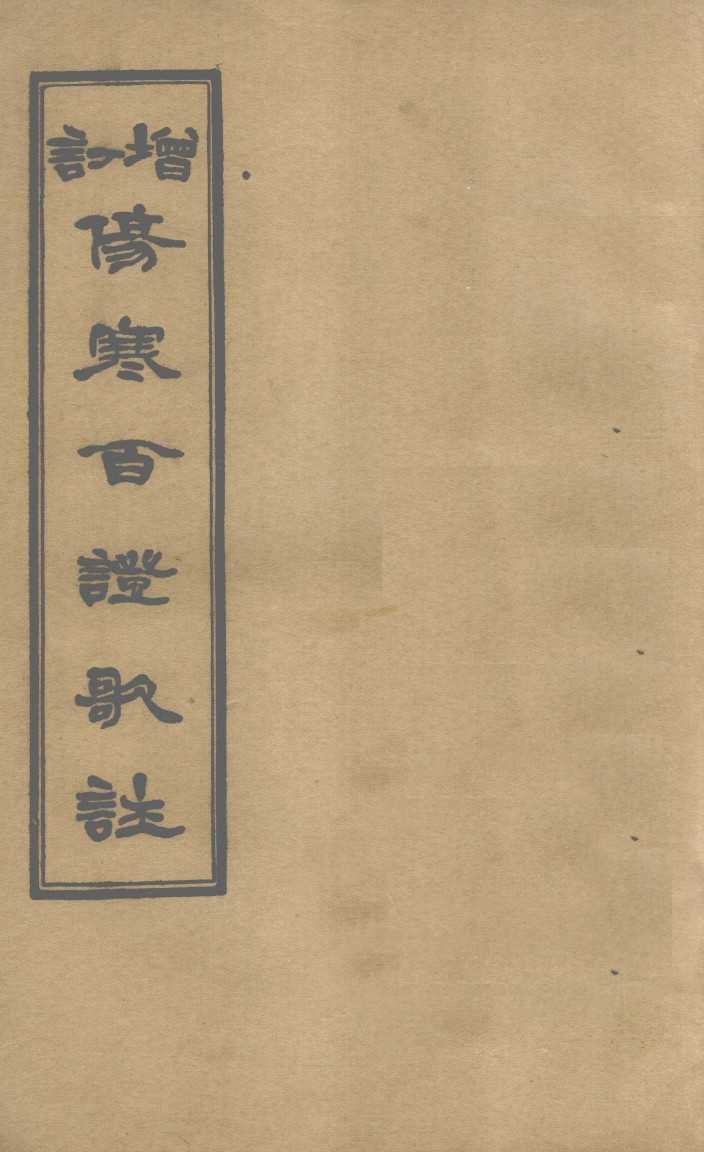 增訂
傷寒百證歌註